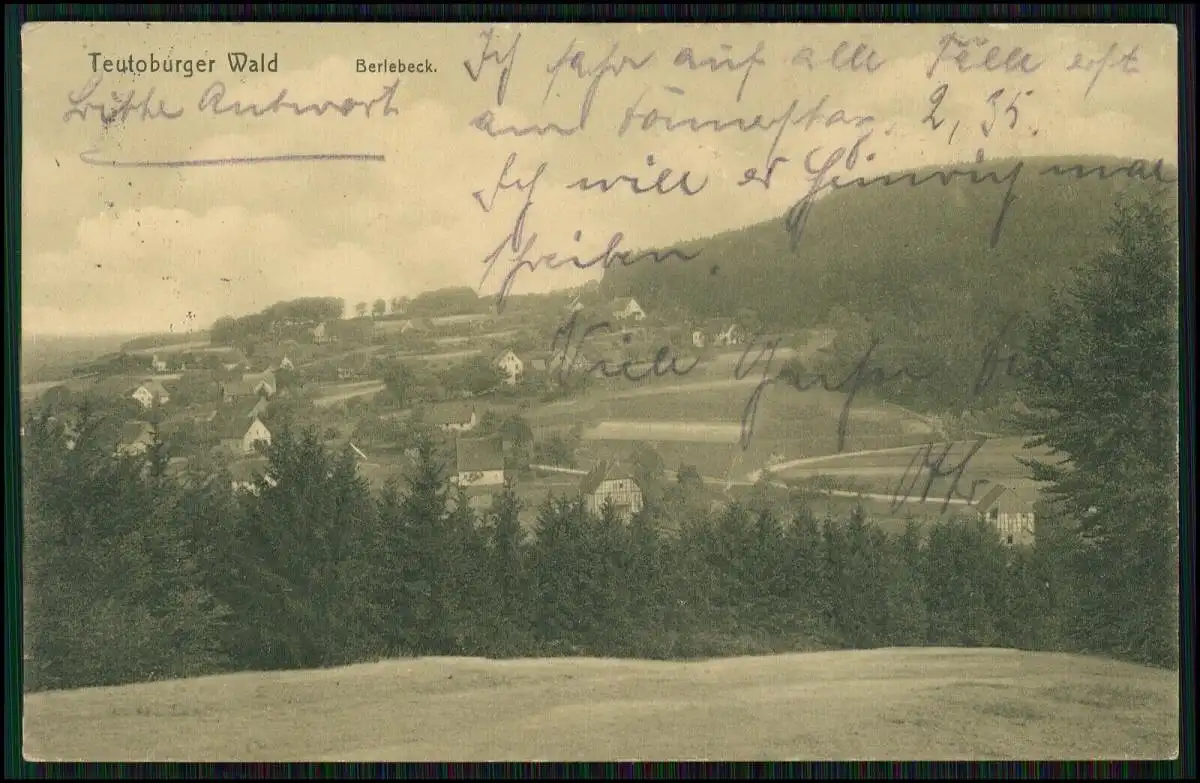 Teutoburger Wald
Berlebeck.
Bitte Antwort
Ich fahr auf alle Fälle erst
am Donnerstag. 2,35.
Ich will er Heinrich mal
schreiben.
Viele Grüße